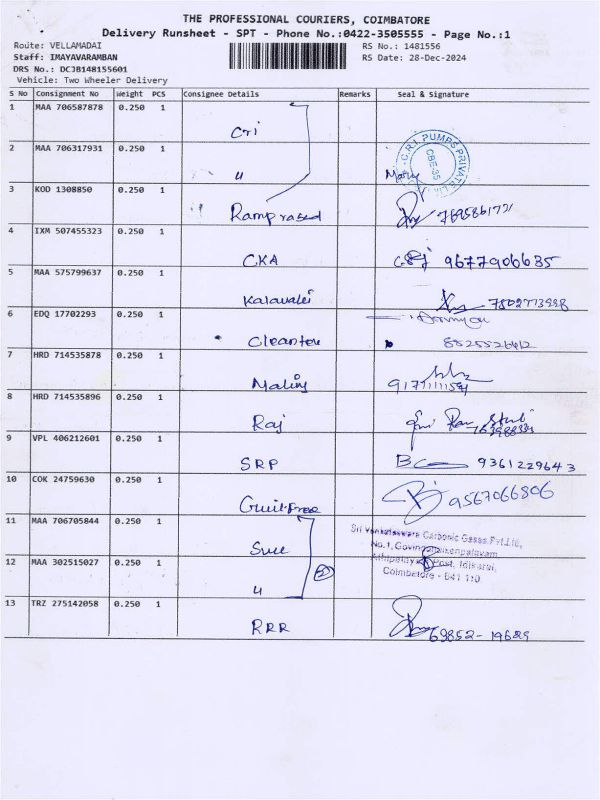 THE PROFESSIONAL COURIERS, COIMBATORE
Delivery Runsheet - SPT - Phone No.:0422-3505555 - Page No.:1
Route: VELLAMADAI
RS No.: 1481556
Staff: IMAYAVARAMBAN
RS Date: 28-Dec-2024
DRS No.: DCJB148155601
Vehicle: Two Wheeler Delivery
S No Consignment No Weight PCS Consignee Details Remarks Seal & Signature
1 MAA 706587878 0.250 1 Cri
2 MAA 706317931 0.250 1 "
C.R.I. PUMPS PRIVATE
CBE-35
Mary
3 KOD 1308850 0.250 1 Ramprasad
4 IXM 507455323 0.250 1 CKA 9677906635
5 MAA 575799637 0.250 1 Kalavalli
6 EDQ 17702293 0.250 1 Cleantek
7 HRD 714535878 0.250 1
8 HRD 714535896 0.250 1 Raj
9 VPL 406212601 0.250 1 SRP 9361229643
10 COK 24759630 0.250 1 9567066806
11 MAA 706705844 0.250 1
Sri Venkateswara Carbonic Gases Pvt.Ltd,
No.1,
Post, Idikarai,
Coimbatore - 641 110
12 MAA 302515027 0.250 1 "
13 TRZ 275142058 0.250 1 RRR 69852-19629